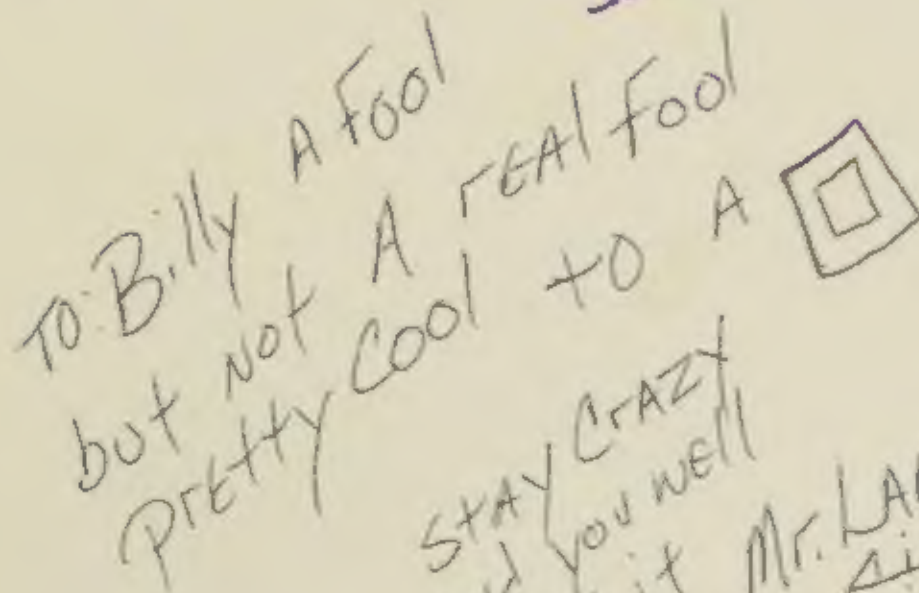 TO: Billy A Fool
but Not A rEAl Fool
PrEtty Cool to A
StAy CrAZy
you wEll
it Mr.